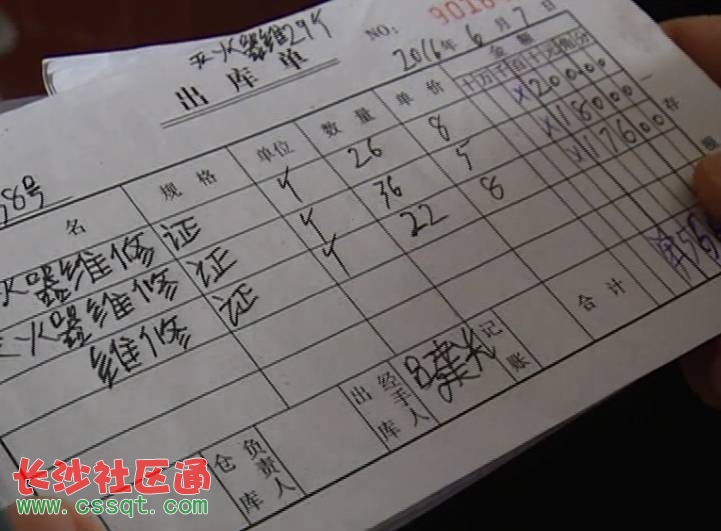 灭火器维29个
NO: 9018
出库单
2016年6月7日
8号
名 规格 单位 数量 单价 金额
十万千百十元角分
火器维修证 个 26 8 ¥20000
灭火器维修证 个 36 5 ¥18000
维修证 个 22 8 ¥17600
存
合计
仓库负责人 出库经手人 记账
长沙社区通
www.cssqt.com